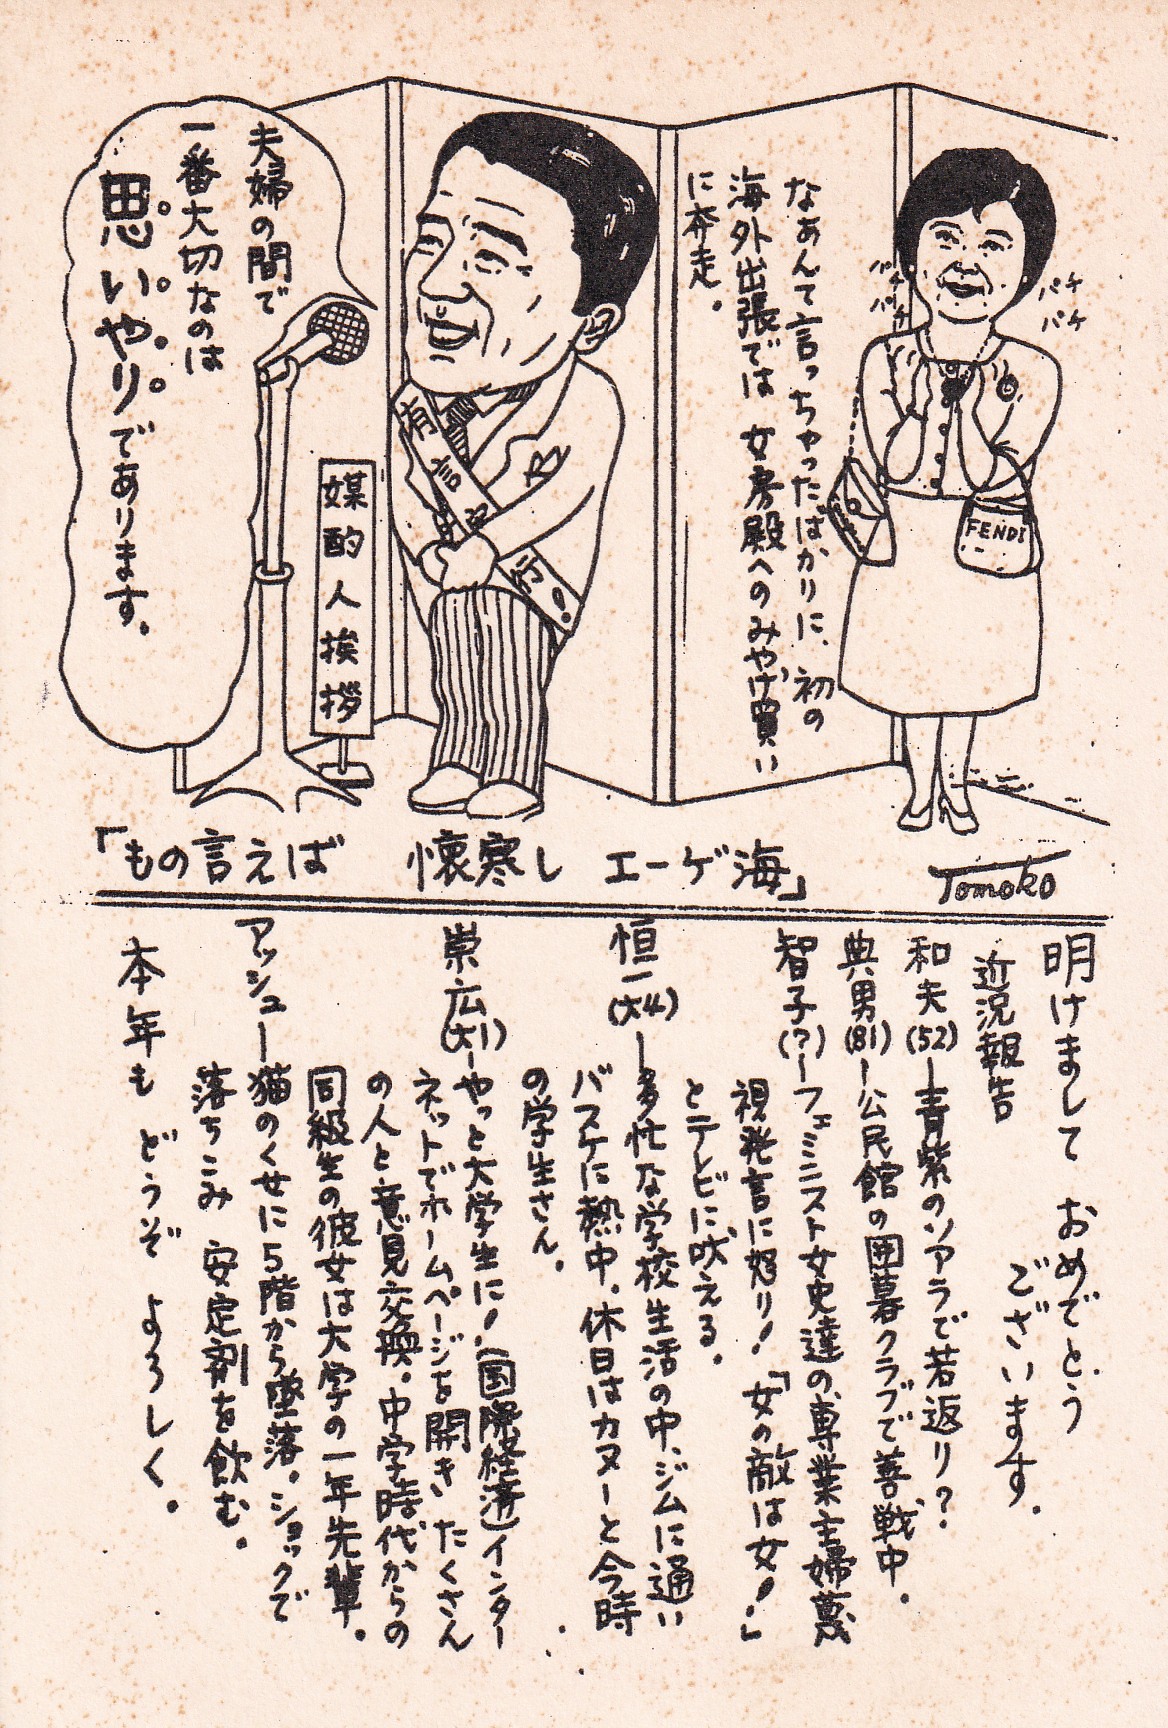 夫婦の間で
一番大切なのは
思いやり
であります。
媒酌人挨拶
有言実行!
なあんて言っちゃったばかりに、初の
海外出張では 女房殿へのみやげ買い
に奔走。
パチ
パチ
パチ
パチ
FENDI
「もの言えば 懐寒し エーゲ海」
Tomoko
明けまして おめでとう
ございます。
近況報告
和夫(52)―青紫のソアラで若返り?
典男(81)―公民館の囲碁クラブで善戦中。
智子(?)―フェミニスト女史達の、専業主婦蔑
視発言に怒り!「女の敵は女!」
とテレビに吠える。
恒一(大4)―多忙な学校生活の中、ジムに通い
バスケに熱中。休日はカヌーと今時
の学生さん。
崇広(大1)―やっと大学生に!(国際経済)インター
ネットでホームページを開き たくさん
の人と意見交換。中学時代からの
同級生の彼女は大学の一年先輩。
アッシュ―猫のくせに5階から墜落。ショックで
落ちこみ 安定剤を飲む。
本年も どうぞ よろしく。